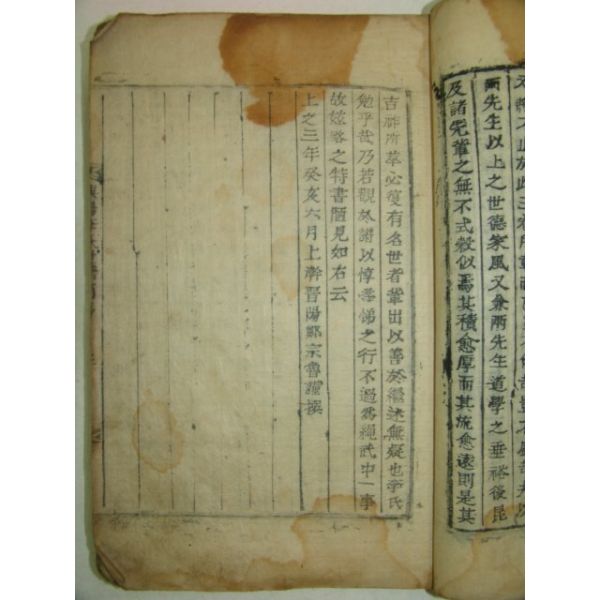 兩先生以上之世德家風又兼兩先生道學之垂裕後昆
及諸先輩之無不式穀似焉其積愈厚而其流愈遠則是其
吉祥所萃必復有名世者輩出以善於繼述無疑也李氏
勉乎哉乃若觀於譜以惇孝悌之行不過爲繩武中一事
故玆略之特書陋見如右云
上之三年癸亥六月上澣晉陽鄭宗魯謹撰